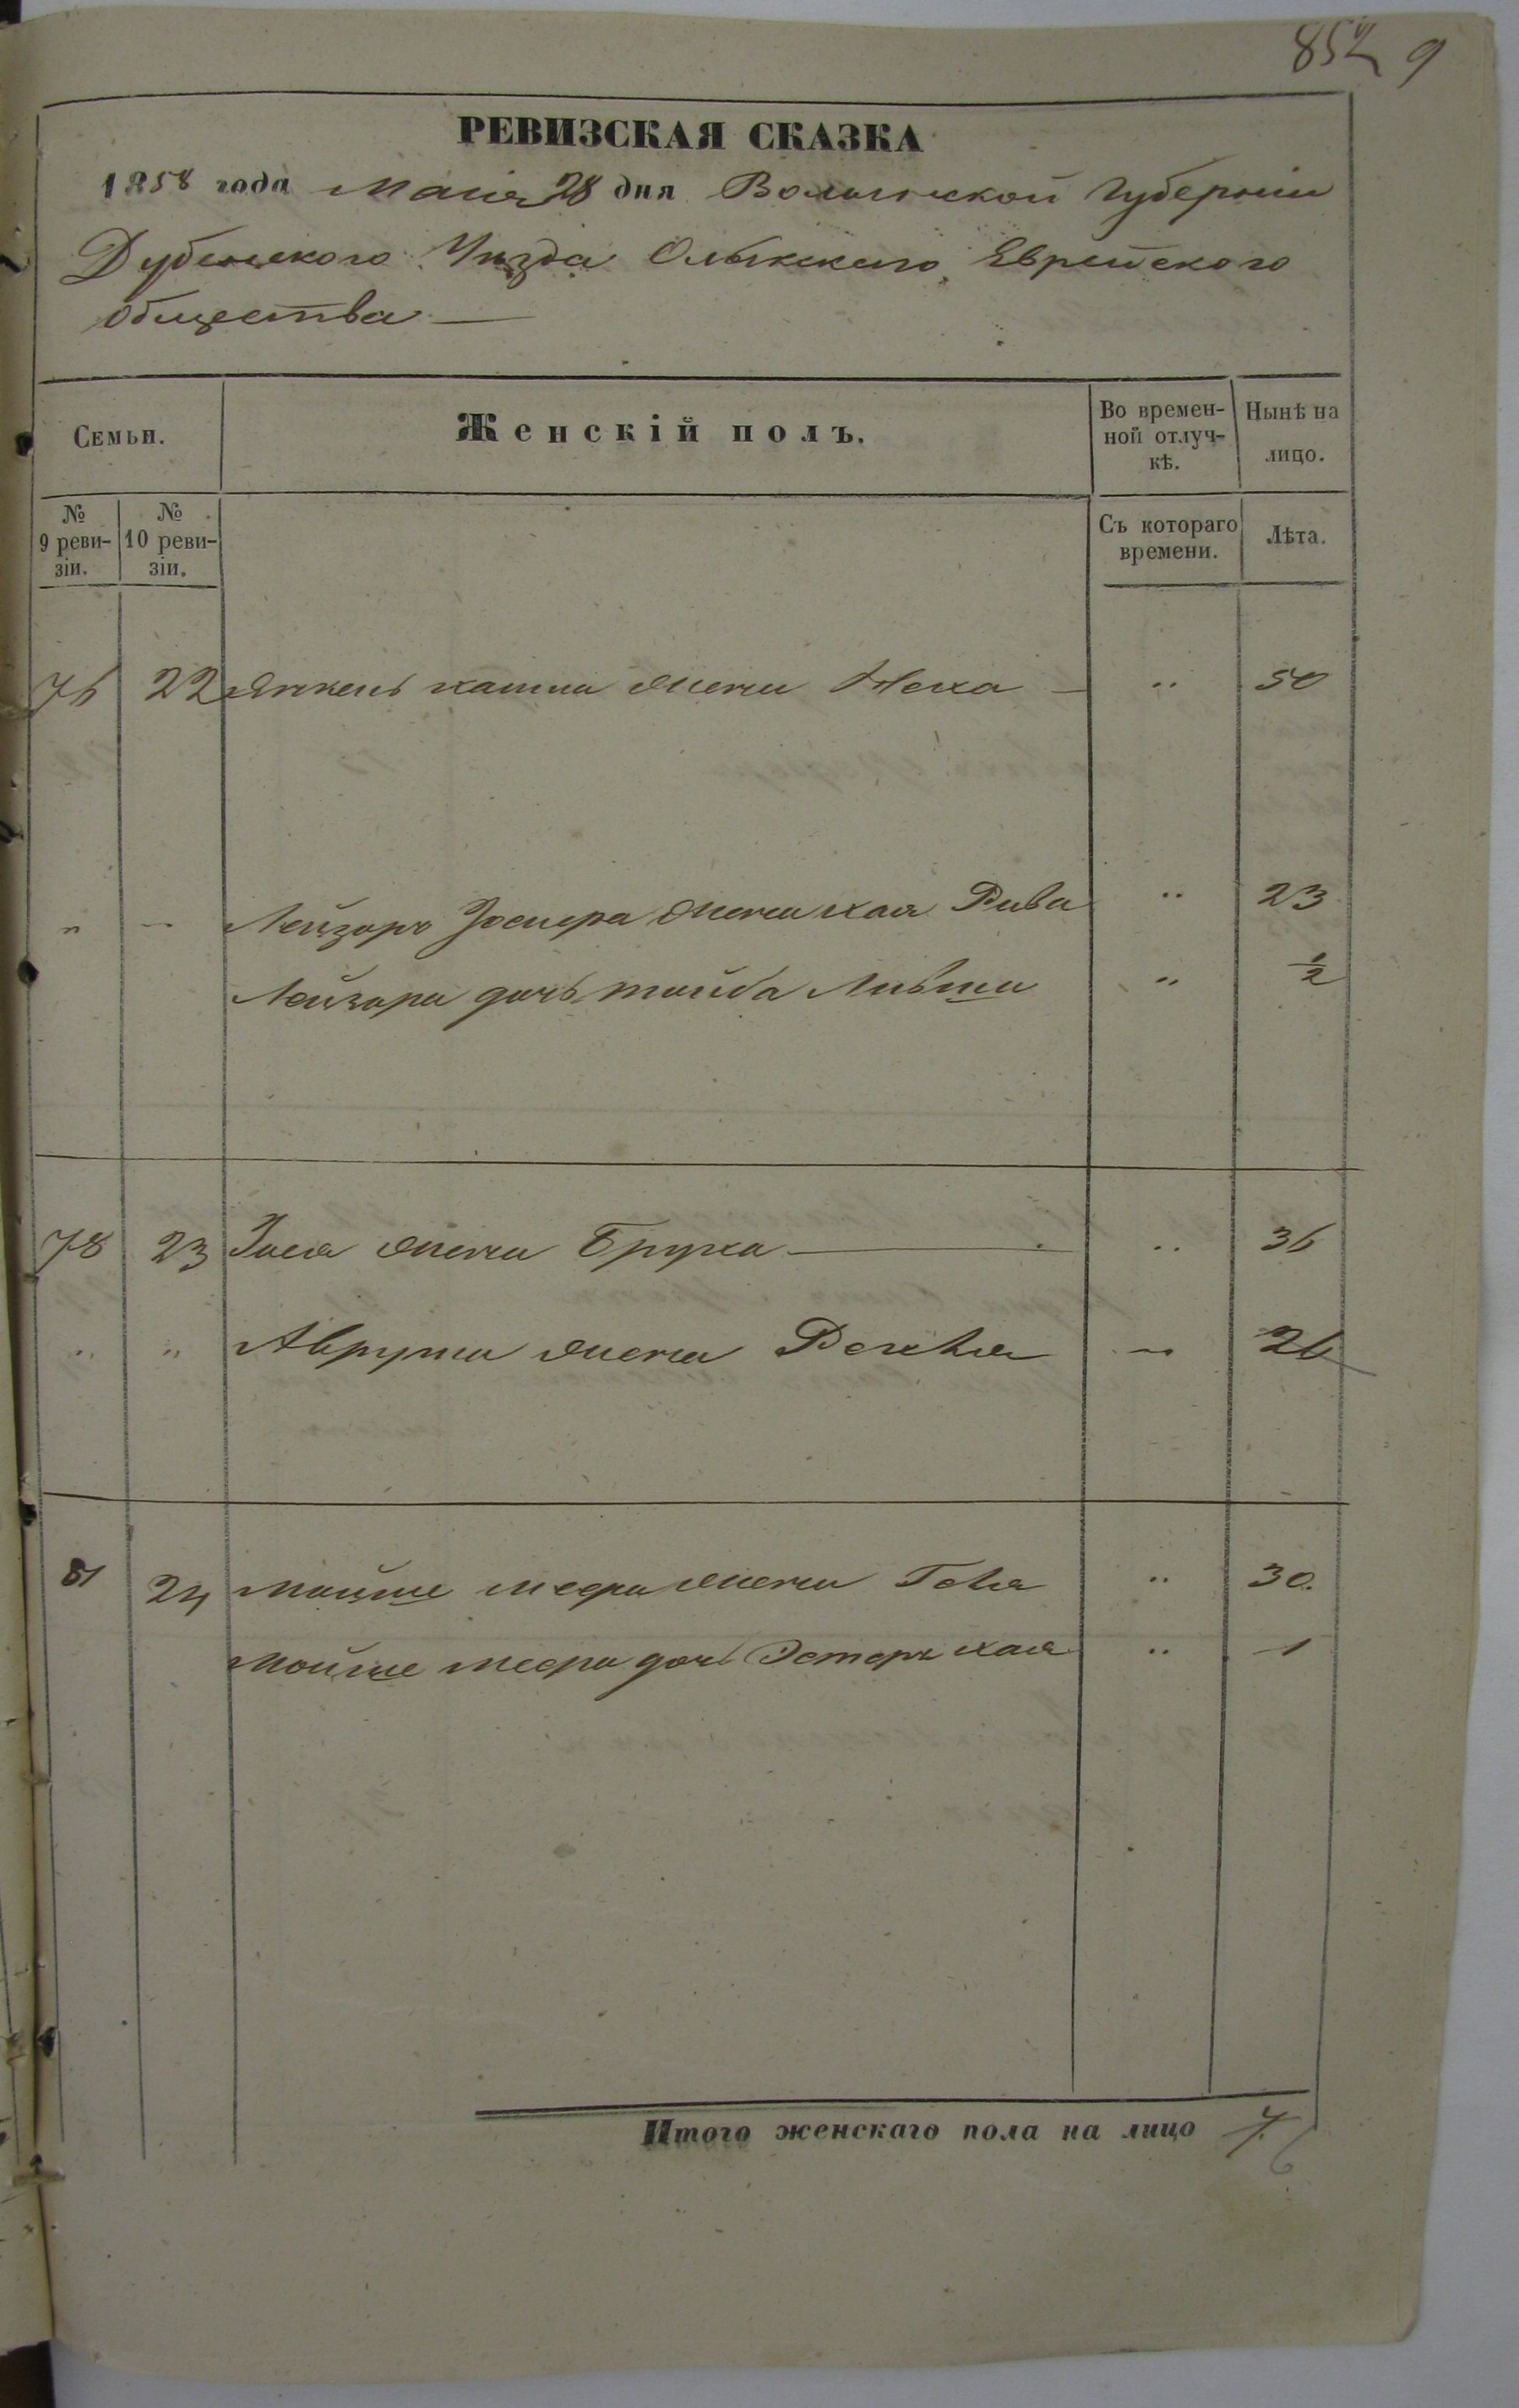 852 9
РЕВИЗСКАЯ СКАЗКА
1858 года Маія 28 дня Волынской Губерніи
Дубенского Уѣзда Олыкского Еврейского
общества
Семьи.
Женскій полъ.
Во времен-
ной отлуч-
кѣ.
Нынѣ на
лицо.
№
9 реви-
зіи.
№
10 реви-
зіи.
Съ котораго
времени.
Лѣта.
76 22 жена Неха — " 50
" " Лейзора жена хая Рива " 23
Лейзора дочь тайба " ½
78 23 жена Бруха — " 36
" " Аврума жена " 26
81 24 мойше меера жена " 30.
мойше меера дочь Эстеръ хая " 1
Итого женскаго пола на лицо 7.
6